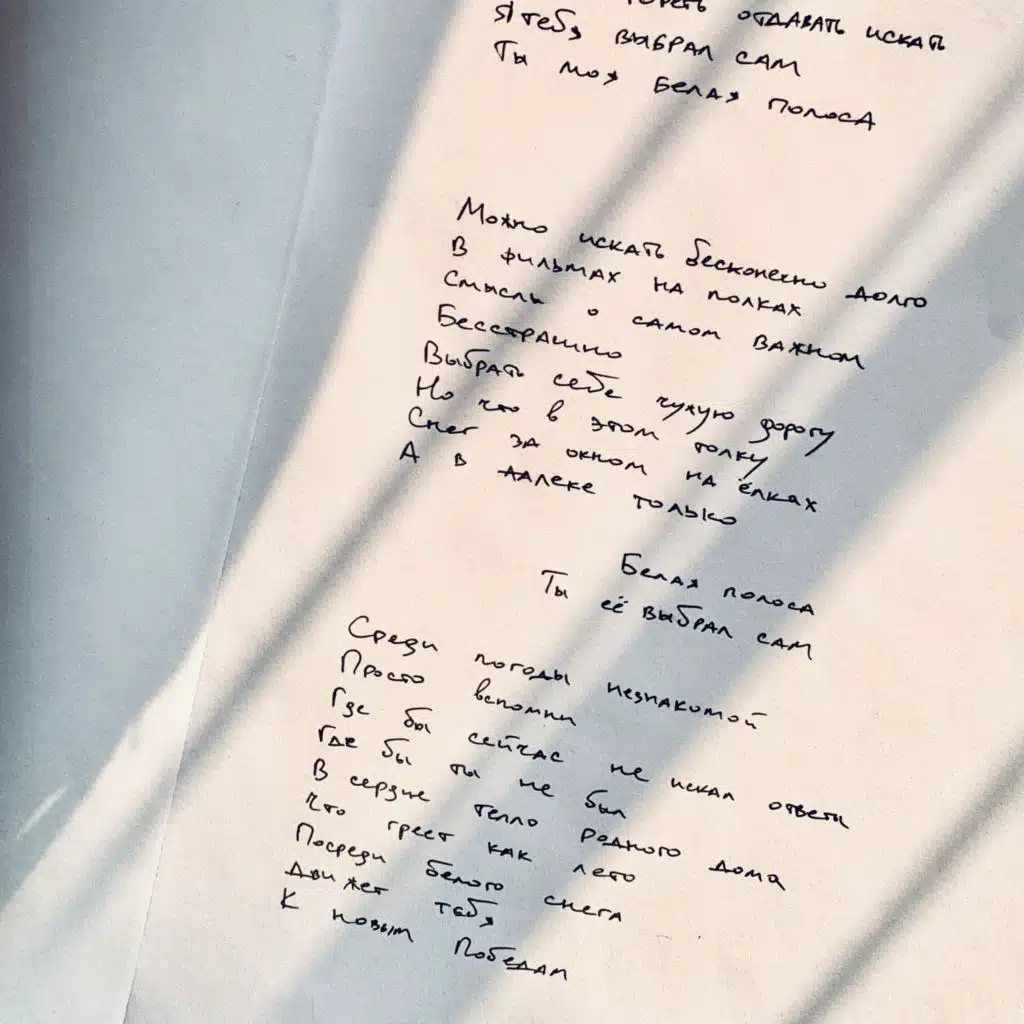 отдавать искать
Я тебя выбрал сам
Ты моя белая полоса
Можно искать бесконечно долго
В фильмах на полках
Смыслы о самом важном
Бесстрашно
Выбрать себе чужую дорогу
Но что в этом толку
Снег за окном на ёлках
А в далеке только
Белая полоса
Ты её выбрал сам
Среди погоды незнакомой
Просто вспомни
Где бы сейчас не искал ответы
Где бы ты не был
В сердце тепло родного дома
Что греет как лето
Посреди белого снега
Движет тебя
К новым Победам